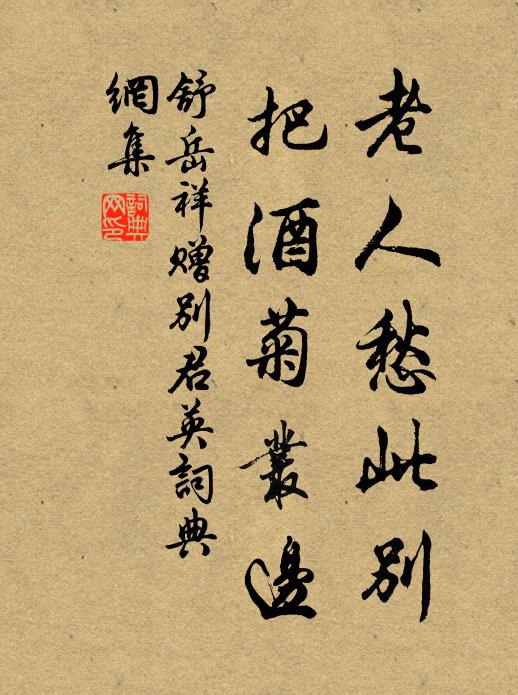 老人愁此別
把酒菊叢邊
舒岳祥贈別君英詞典
網集
詞典
网印